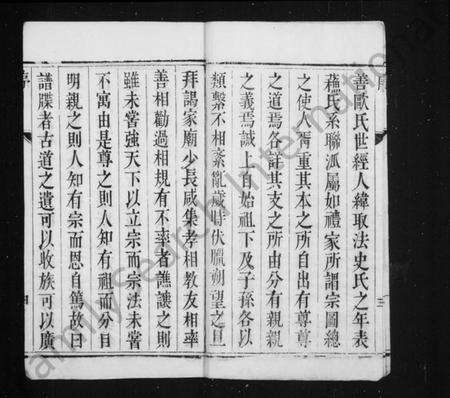 善歐氏世經人緯取法史氏之年表
蘓氏系聯派屬如禮家所謂宗圖總
之使人胥重其本之所自出有尊尊
之道焉各詳其支之所由分有親親
之義焉誠上自始祖下及子孫各以
類繫不相紊亂歲時伏臘朔望之旦
拜謁家廟少長咸集孝相教友相率
善相勸過相規有不率者譙讓之則
雖未嘗強天下以立宗而宗法未嘗
不寓由是尊之則人知有祖而分目
明親之則人知有宗而恩自篤故曰
譜牒者古道之遺可以收族可以廣
FamilySearch International